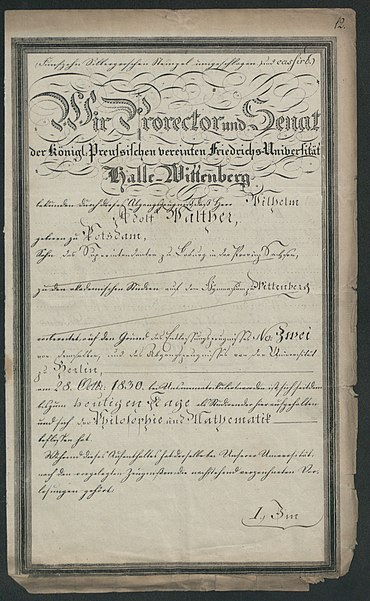 12.
Fünfzehn Silbergroschen Stempel umgeschlagen und cassirt.
Wir Prorector und Senat
der Königl. Preussischen vereinten Friedrichs-Universität
Halle-Wittenberg
bekunden durch dieses Abgangszeugniß, daß Herr Wilhelm
Adolf Walther,
geboren zu Potsdam,
Sohn des Superintendenten zu Loburg in der Provinz Sachsen,
zu den akademischen Studien auf dem Gymnasium zu Wittenberg
vorbereitet, auf den Grund des Entlassungszeugnisses No. Zwei
von demselben, und des Abgangszeugnisses von der Universität
zu Berlin,
am 28. Octb. 1830. bei uns immatriculirt worden ist, sich seitdem
bis zum heutigen Tage als Studirender hier aufgehalten
und sich der Philosophie und Mathematik
beflissen hat.
Während dieses Aufenthaltes hat derselbe bei Unserer Universität,
nach den vorgelegten Zeugnissen die nachstehend verzeichneten Vor-
lesungen gehört:
1, Im